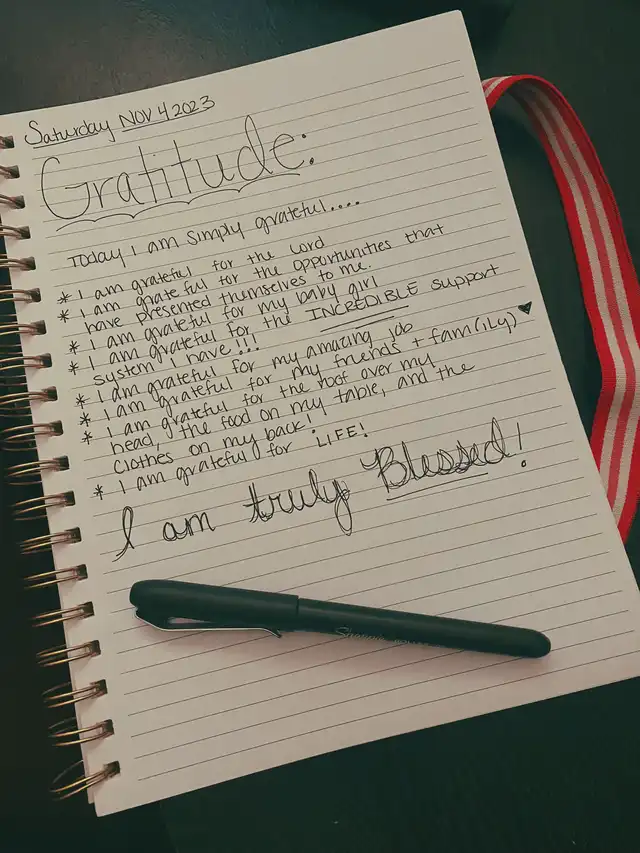 Saturday NOV 4 2023
Gratitude:
Today I am simply grateful....
* I am grateful for the Lord
* I am grateful for the opportunities that
have presented themselves to me.
* I am grateful for my baby girl
* I am grateful for the INCREDIBLE support
system I have!!!
* I am grateful for my amazing job
* I am grateful for my friends + fam(ily) ♥
* I am grateful for the roof over my
head, the food on my table, and the
clothes on my back!
* I am grateful for "LIFE!
I am truly Blessed!